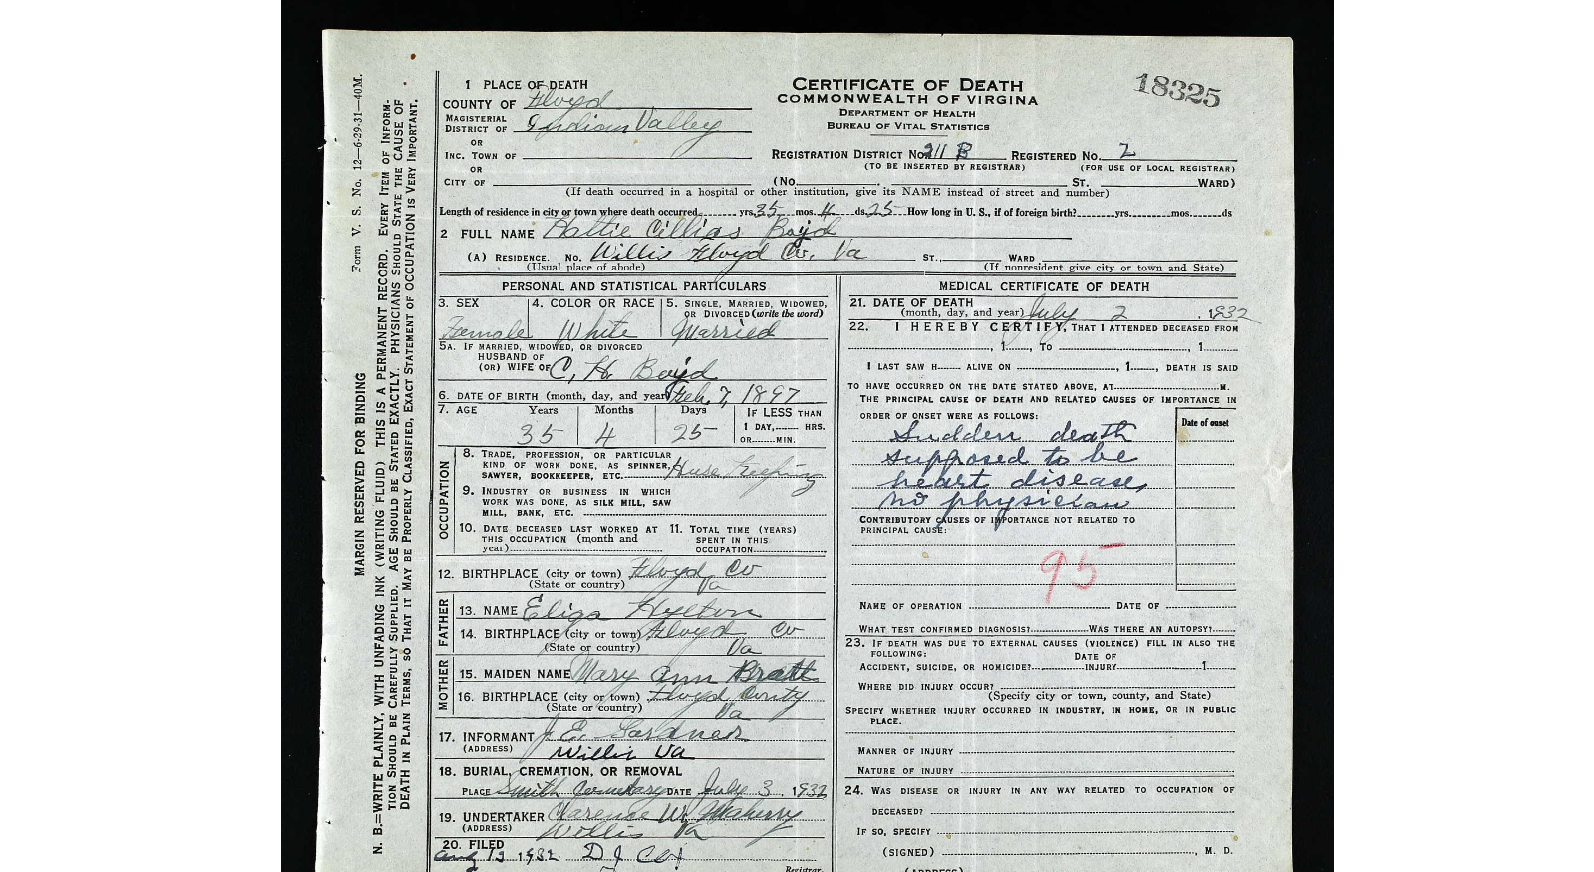 Form V. S. No. 12—6-29-31—40M.
MARGIN RESERVED FOR BINDING
N. B.—WRITE PLAINLY, WITH UNFADING INK (WRITING FLUID) THIS IS A PERMANENT RECORD. EVERY ITEM OF INFORM-
TION SHOULD BE CAREFULLY SUPPLIED. AGE SHOULD BE STATED EXACTLY. PHYSICIANS SHOULD STATE THE CAUSE OF
DEATH IN PLAIN TERMS, SO THAT IT MAY BE PROPERLY CLASSIFIED, EXACT STATEMENT OF OCCUPATION IS VERY IMPORTANT.
CERTIFICATE OF DEATH
COMMONWEALTH OF VIRGINIA
DEPARTMENT OF HEALTH
BUREAU OF VITAL STATISTICS
18325
1 PLACE OF DEATH
COUNTY OF Floyd
MAGISTERIAL
DISTRICT OF Indian Valley
OR
INC. TOWN OF
OR
CITY OF
REGISTRATION DISTRICT No. 211 B REGISTERED NO. 2
(TO BE INSERTED BY REGISTRAR) (FOR USE OF LOCAL REGISTRAR)
(NO. ST. WARD)
(If death occurred in a hospital or other institution, give its NAME instead of street and number)
Length of residence in city or town where death occurred yrs. 35 mos. 4 ds. 25 How long in U. S., if of foreign birth? yrs. mos. ds
2 FULL NAME Hattie Boyd
(A) RESIDENCE. NO. Willis Floyd Co. Va ST., WARD
(Usual place of abode) (If nonresident give city or town and State)
PERSONAL AND STATISTICAL PARTICULARS
3. SEX Female
4. COLOR OR RACE White
5. SINGLE, MARRIED, WIDOWED,
OR DIVORCED (write the word) Married
5A. IF MARRIED, WIDOWED, OR DIVORCED
HUSBAND OF
(OR) WIFE OF C. H. Boyd
6. DATE OF BIRTH (month, day, and year) Feb. 7, 1897
7. AGE Years Months Days IF LESS THAN
1 DAY, HRS.
OR MIN.
35 4 25
OCCUPATION
8. TRADE, PROFESSION, OR PARTICULAR
KIND OF WORK DONE, AS SPINNER,
SAWYER, BOOKKEEPER, ETC. House Keeping
9. INDUSTRY OR BUSINESS IN WHICH
WORK WAS DONE, AS SILK MILL, SAW
MILL, BANK, ETC.
10. DATE DECEASED LAST WORKED AT
THIS OCCUPATION (month and
year)
11. TOTAL TIME (YEARS)
SPENT IN THIS
OCCUPATION
12. BIRTHPLACE (city or town) Floyd Co
(State or country) Va
FATHER
13. NAME Eliga Hylton
14. BIRTHPLACE (city or town) Floyd Co
(State or country) Va
MOTHER
15. MAIDEN NAME Mary Ann Bratt
16. BIRTHPLACE (city or town) Floyd County
(State or country) Va
17. INFORMANT J. E. Gardner
(ADDRESS) Willis Va
18. BURIAL, CREMATION, OR REMOVAL
PLACE Smith Cemetary DATE July 3, 1932
19. UNDERTAKER Clarence W.
(ADDRESS) Willis Va
20. FILED
1932 D J
Registrar.
MEDICAL CERTIFICATE OF DEATH
21. DATE OF DEATH
(month, day, and year) July 2, 1932
22. I HEREBY CERTIFY, THAT I ATTENDED DECEASED FROM
, 1 , TO , 1
I LAST SAW H ALIVE ON , 1 , DEATH IS SAID
TO HAVE OCCURRED ON THE DATE STATED ABOVE, AT M.
THE PRINCIPAL CAUSE OF DEATH AND RELATED CAUSES OF IMPORTANCE IN
ORDER OF ONSET WERE AS FOLLOWS:
Date of onset
Sudden death
supposed to be
heart disease,
no physician
CONTRIBUTORY CAUSES OF IMPORTANCE NOT RELATED TO
PRINCIPAL CAUSE:
95
NAME OF OPERATION DATE OF
WHAT TEST CONFIRMED DIAGNOSIS? WAS THERE AN AUTOPSY?
23. IF DEATH WAS DUE TO EXTERNAL CAUSES (VIOLENCE) FILL IN ALSO THE
FOLLOWING:
DATE OF
ACCIDENT, SUICIDE, OR HOMICIDE? INJURY 1
WHERE DID INJURY OCCUR?
(Specify city or town, county, and State)
SPECIFY WHETHER INJURY OCCURRED IN INDUSTRY, IN HOME, OR IN PUBLIC
PLACE.
MANNER OF INJURY
NATURE OF INJURY
24. WAS DISEASE OR INJURY IN ANY WAY RELATED TO OCCUPATION OF
DECEASED?
IF SO, SPECIFY
(SIGNED) , M. D.
(ADDRESS)